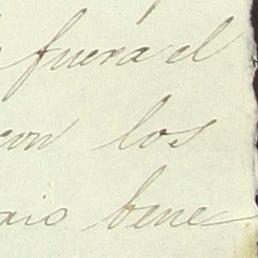 fuera el
con los
bene